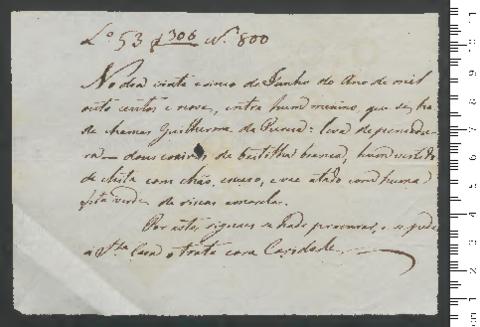 Lº 53 f 306 Nº 800
No dia vinte e sinco de Junho do Ano de mil
outo centos e nove, entra hum menino, que se ha
de chamar Guilherme da Pureza: leva de
dous de branca, hum vestido
de chita com chão, e vae atado com huma
fita verde de riscas amarela.
Por estes signaes se hade procurar, e se pede
á Sta Caza o trate com Caridade